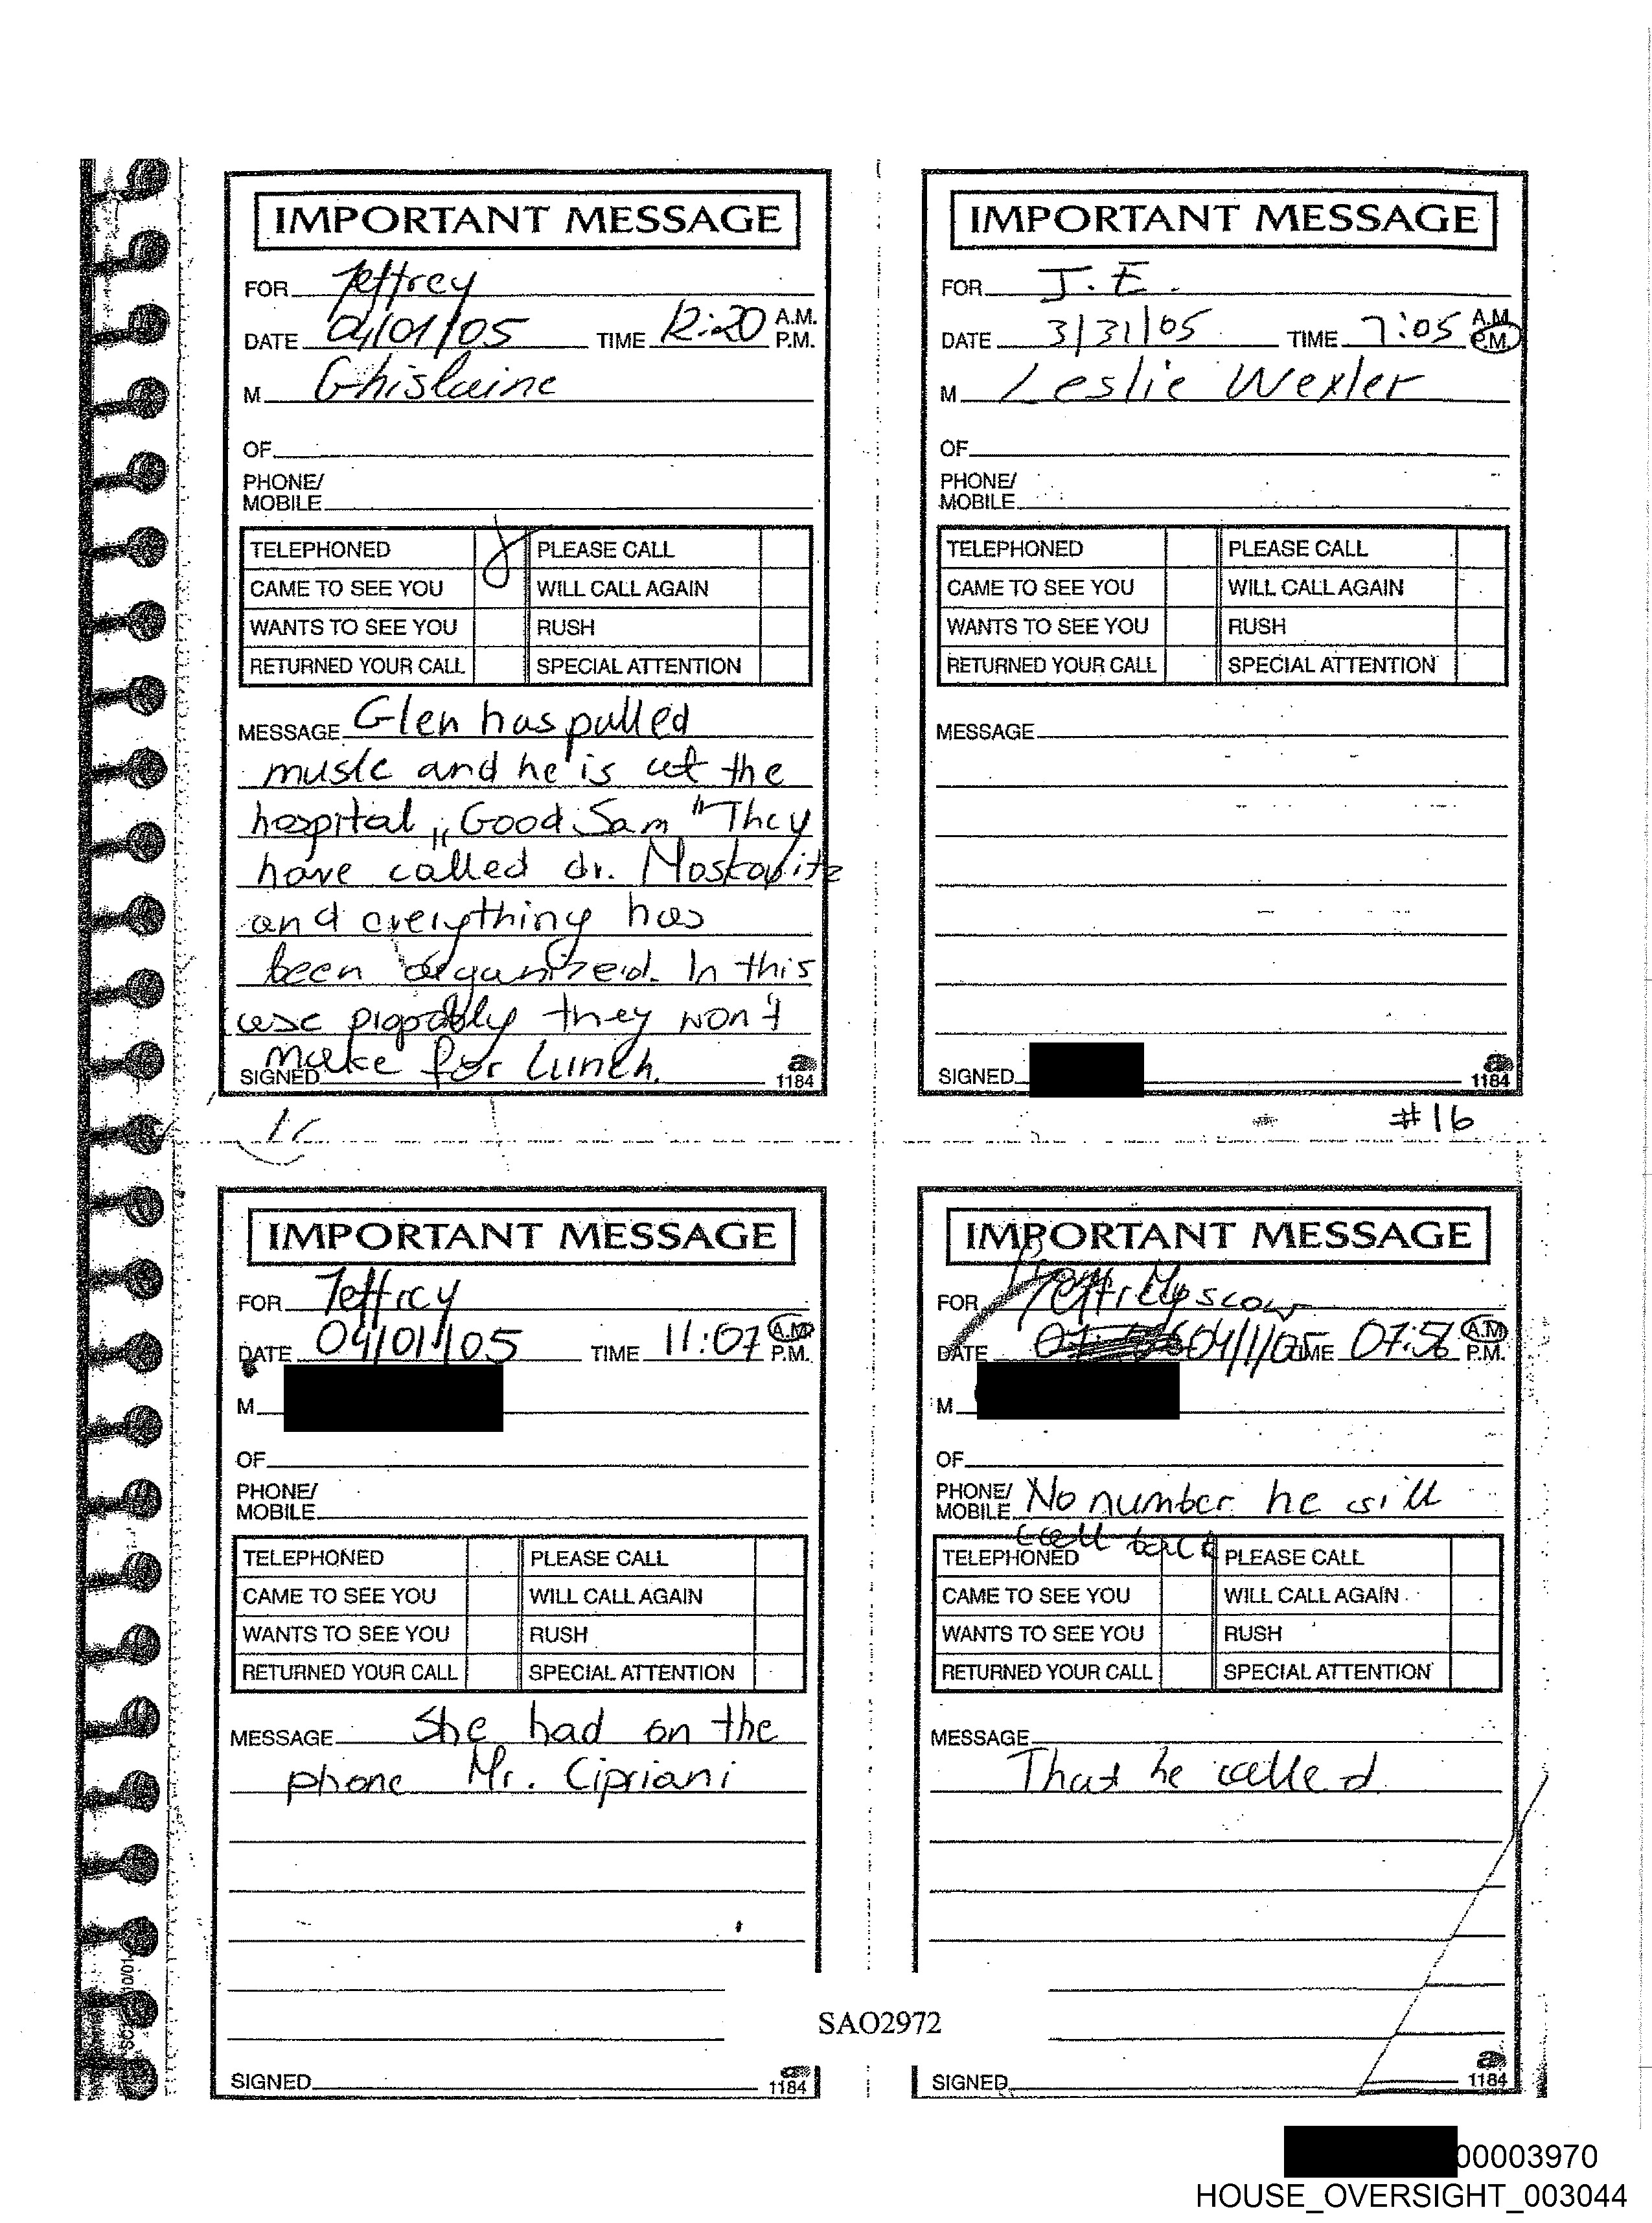 IMPORTANT MESSAGE
FOR Jeffrey
DATE 04/01/05 TIME 12:20 A.M. P.M.
M Ghislaine
OF
PHONE/ MOBILE
TELEPHONED PLEASE CALL
CAME TO SEE YOU WILL CALL AGAIN
WANTS TO SEE YOU RUSH
RETURNED YOUR CALL SPECIAL ATTENTION
MESSAGE Glen has pulled
muslc and he is at the
hospital „Good Sam" They
have called dr. Moskovitz
and everything has
been organized. In this
case propobly they won't
make for lunch.
SIGNED
a 1184
IMPORTANT MESSAGE
FOR J.E.
DATE 3/31/05 TIME 7:05 A.M. P.M.
M Leslie Wexler
OF
PHONE/ MOBILE
TELEPHONED PLEASE CALL
CAME TO SEE YOU WILL CALL AGAIN
WANTS TO SEE YOU RUSH
RETURNED YOUR CALL SPECIAL ATTENTION
MESSAGE
SIGNED
a 1184
#16
IMPORTANT MESSAGE
FOR Jeffrey
DATE 04/01/05 TIME 11:07 A.M. P.M.
M
OF
PHONE/ MOBILE
TELEPHONED PLEASE CALL
CAME TO SEE YOU WILL CALL AGAIN
WANTS TO SEE YOU RUSH
RETURNED YOUR CALL SPECIAL ATTENTION
MESSAGE She had on the
phone Mr. Cipriani
SIGNED
a 1184
IMPORTANT MESSAGE
FOR Jeffrey
DATE 04/1/05 TIME 07:56 A.M. P.M.
M
OF
PHONE/ MOBILE No number he will
call back
TELEPHONED PLEASE CALL
CAME TO SEE YOU WILL CALL AGAIN
WANTS TO SEE YOU RUSH
RETURNED YOUR CALL SPECIAL ATTENTION
MESSAGE
That he called
SIGNED
a 1184
SAO2972
00003970
HOUSE_OVERSIGHT_003044